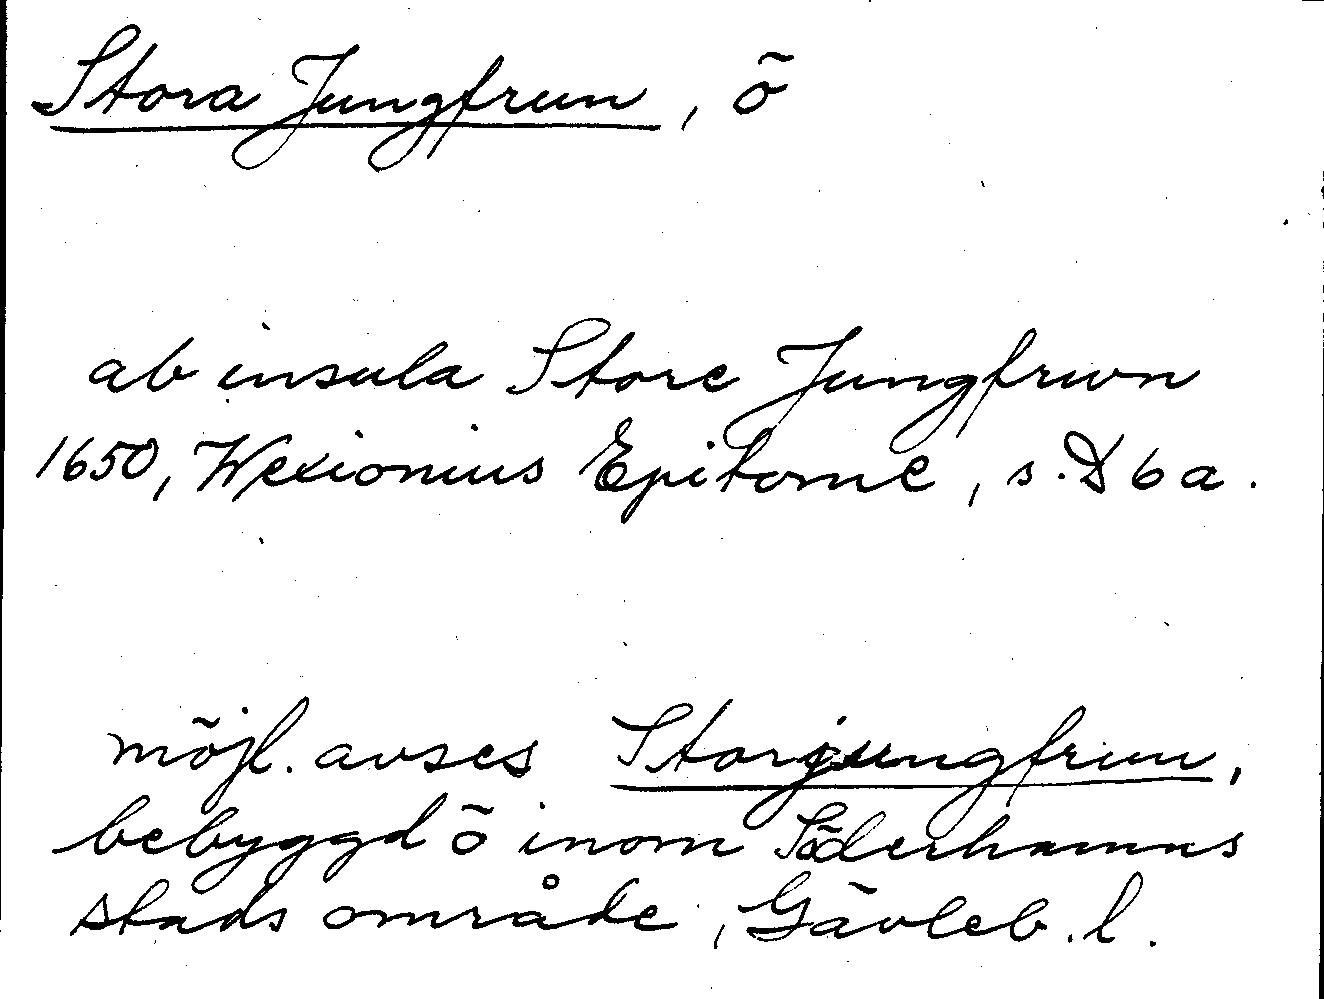 Stora Jungfrun, ö
ab insula Store Jungfrwn
1650, Wexionius Epitome, s. D 6 a.
möjl. avses Storjungfrun,
bebyggd ö inom Söderhamns
stads område, Gävleb. l.